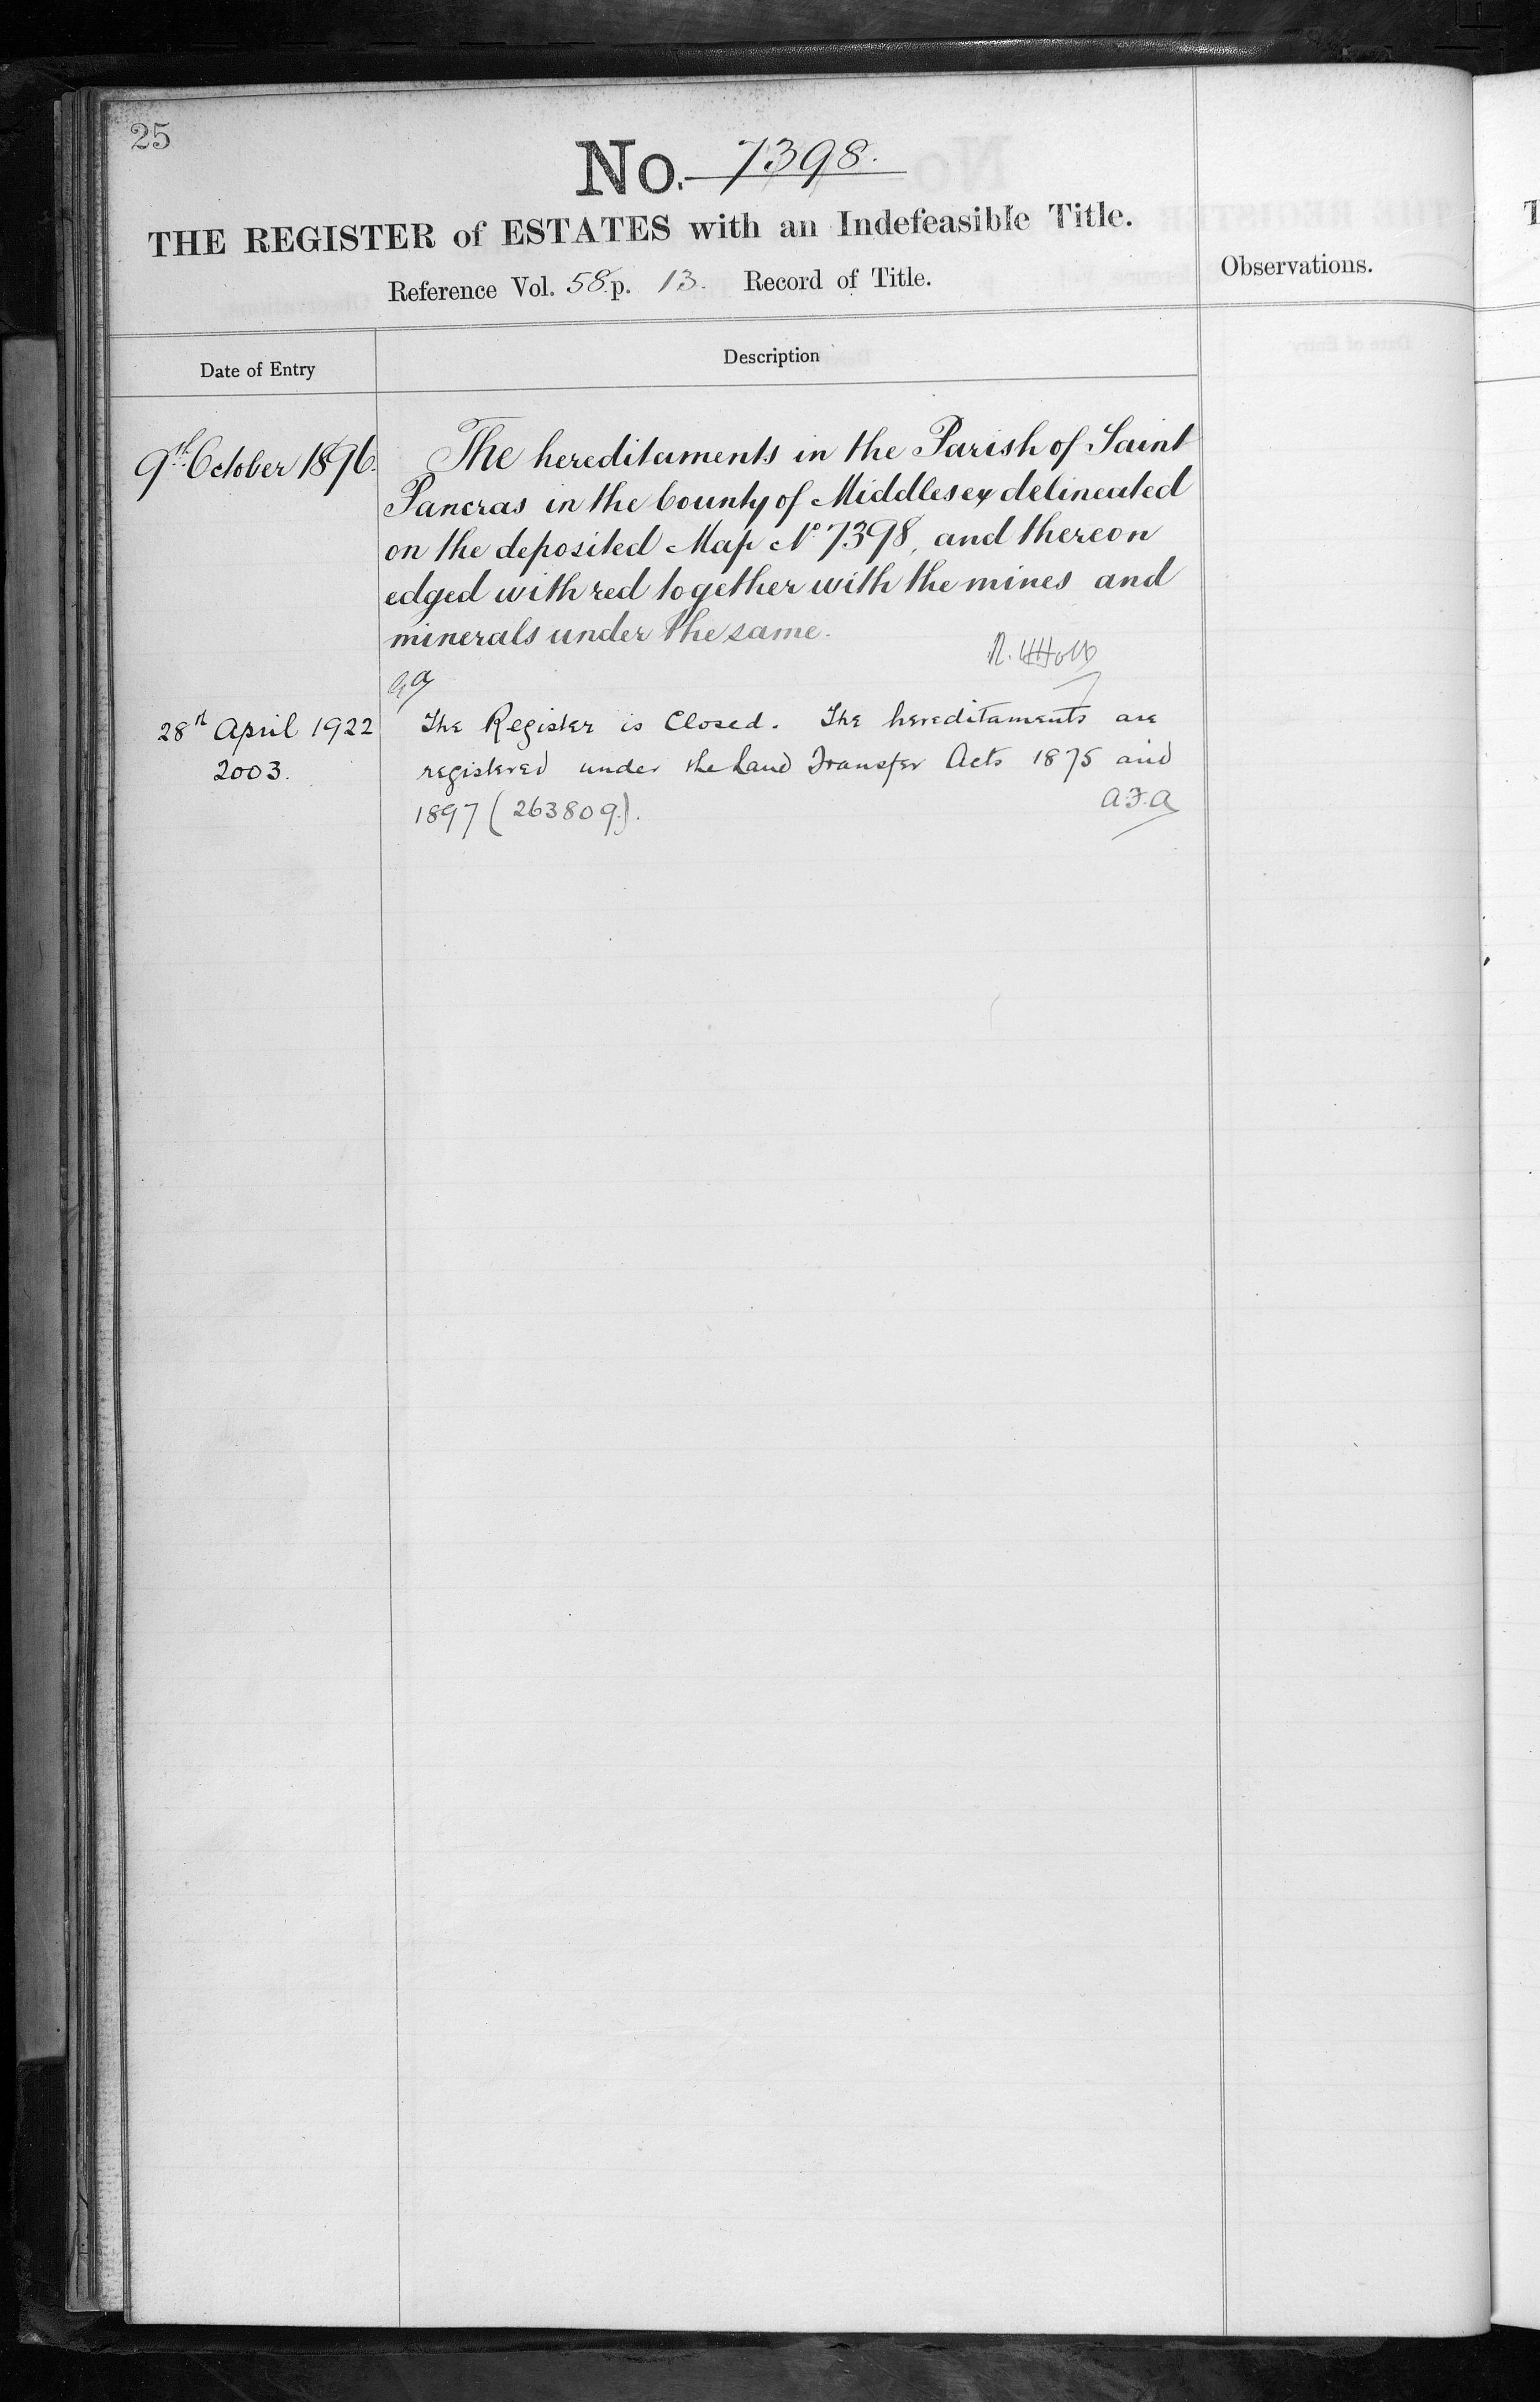 25
No. 7398.
THE REGISTER of ESTATES with an Indefeasible Title.
Reference Vol. 58. p. 13. Record of Title.
Observations.
Date of Entry
Description
9th October 1896.
The hereditaments in the Parish of Saint
Pancras in the County of Middlesex delineated
on the deposited Map No 7398, and thereon
edged with red together with the mines and
minerals under the same.
28th April 1922
2003.
The Register is Closed. The hereditaments are
registered under the Land Transfer Acts 1875 and
1897 (263809.).
A.F.A